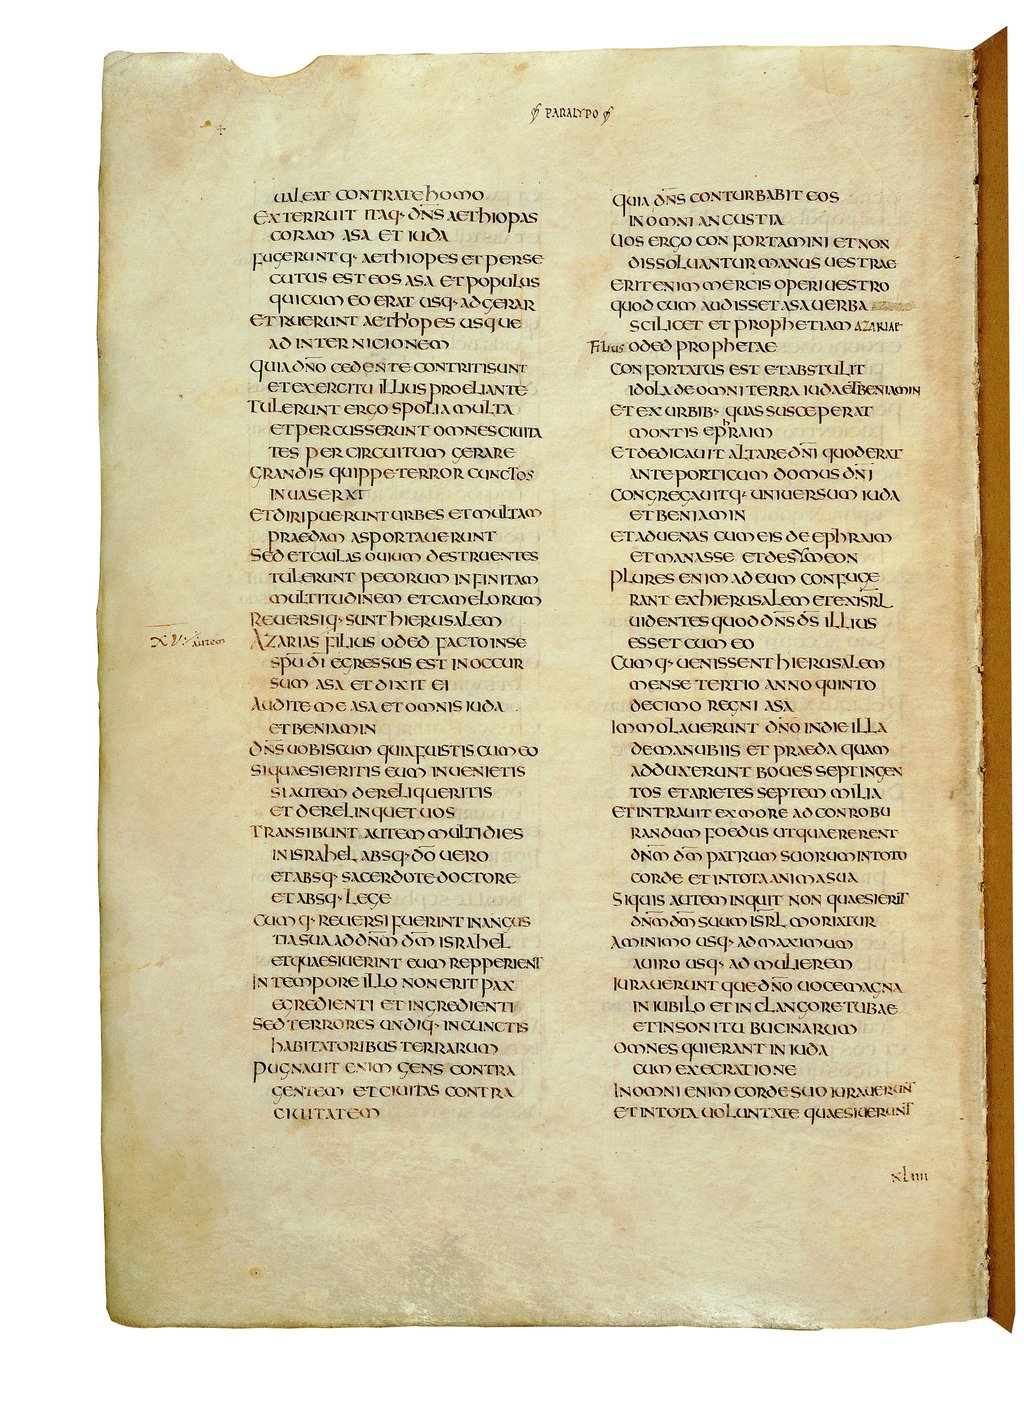 PARALYPO
UALEAT CONTRA TE HOMO
EXTERRUIT ITAQ· DN̄S AETHIOPAS
CORAM ASA ET IUDA
FUGERUNTQ· AETHIOPES ET PERSE
CUTUS EST EOS ASA ET POPULUS
QUI CUM EO ERAT USQ· AD GERAR
ET RUERUNT AETHIOPES USQUE
AD INTERNICIONEM
QUIA DN̄O CEDENTE CONTRITI SUNT
ET EXERCITU ILLIUS PROELIANTE
TULERUNT ERGO SPOLIA MULTA
ET PERCUSSERUNT OMNES CIUITA
TES PER CIRCUITUM GERARE
GRANDIS QUIPPE TERROR CUNCTOS
INUASERAT
ET DIRIPUERUNT URBES ET MULTAM
PRAEDAM ASPORTAUERUNT
SED ET CAULAS OUIUM DESTRUENTES
TULERUNT PECORUM INFINITAM
MULTITUDINEM ET CAMELORUM
REUERSIQ· SUNT HIERUSALEM
XV· AUTEM
AZARIAS FILIUS ODED FACTO IN SE
SPŪ DĪ EGRESSUS EST IN OCCUR
SUM ASA ET DIXIT EI
AUDITE ME ASA ET OMNIS IUDA
ET BENIAMIN
DN̄S UOBISCUM QUIA FUISTIS CUM EO
SI QUAESIERITIS EUM INUENIETIS
SI AUTEM DERELIQUERITIS
ET DERELINQUET UOS
TRANSIBUNT AUTEM MULTI DIES
IN ISRAHEL ABSQ· DŌ UERO
ET ABSQ· SACERDOTE DOCTORE
ET ABSQ· LEGE
CUMQ· REUERSI FUERINT IN ANGUS
TIA SUA AD DN̄M DM̄ ISRAHEL
ET QUAESIUERINT EUM REPPERIENT
IN TEMPORE ILLO NON ERIT PAX
EGREDIENTI ET INGREDIENTI
SED TERRORES UNDIQ· IN CUNCTIS
HABITATORIBUS TERRARUM
PUGNAUIT ENIM GENS CONTRA
GENTEM ET CIUITAS CONTRA
CIUITATEM
QUIA DN̄S CONTURBABIT EOS
IN OMNI ANGUSTIA
UOS ERGO CONFORTAMINI ET NON
DISSOLUANTUR MANUS UESTRAE
ERIT ENIM MERCIS OPERI UESTRO
QUOD CUM AUDISSET ASA UERBA
SCILICET ET PROPHETIAM AZARIAE
FILIUS ODED PROPHETAE
CONFORTATUS EST ET ABSTULIT
IDOLA DE OMNI TERRA IUDA ET BENIAMIN
ET EX URBIB· QUAS SUSCEPERAT
MONTIS EPHRAIM
ET DEDICAUIT ALTARE DN̄I QUOD ERAT
ANTE PORTICUM DOMUS DN̄I
CONGREGAUITQ· UNIUERSUM IUDA
ET BENIAMIN
ET ADUENAS CUM EIS DE EPHRAIM
ET MANASSE ET DE SYMEON
PLURES ENIM AD EUM CONFUGE
RANT EX HIERUSALEM ET EX ISRL̄
UIDENTES QUOD DN̄S DS̄ ILLIUS
ESSET CUM EO
CUMQ· UENISSENT HIERUSALEM
MENSE TERTIO ANNO QUINTO
DECIMO REGNI ASA
IMMOLAUERUNT DN̄O IN DIE ILLA
DE MANUBIIS ET PRAEDA QUAM
ADDUXERUNT BOUES SEPTINGEN
TOS ET ARIETES SEPTEM MILIA
ET INTRAUIT EX MORE AD CONROBU
RANDUM FOEDUS UT QUAERERENT
DN̄M DM̄ PATRUM SUORUM IN TOTO
CORDE ET IN TOTA ANIMA SUA
SI QUIS AUTEM INQUIT NON QUAESIERIT
DN̄M DM̄ SUUM ISRL̄ MORIATUR
A MINIMO USQ· AD MAXIMUM
A UIRO USQ· AD MULIEREM
IURAUERUNTQUE DN̄O UOCE MAGNA
IN IUBILO ET IN CLANGORE TUBAE
ET IN SONITU BUCINARUM
OMNES QUI ERANT IN IUDA
CUM EXECRATIONE
IN OMNI ENIM CORDE SUO IURAUERUNT
ET IN TOTA UOLUNTATE QUAESIUERUNT
XLIIII